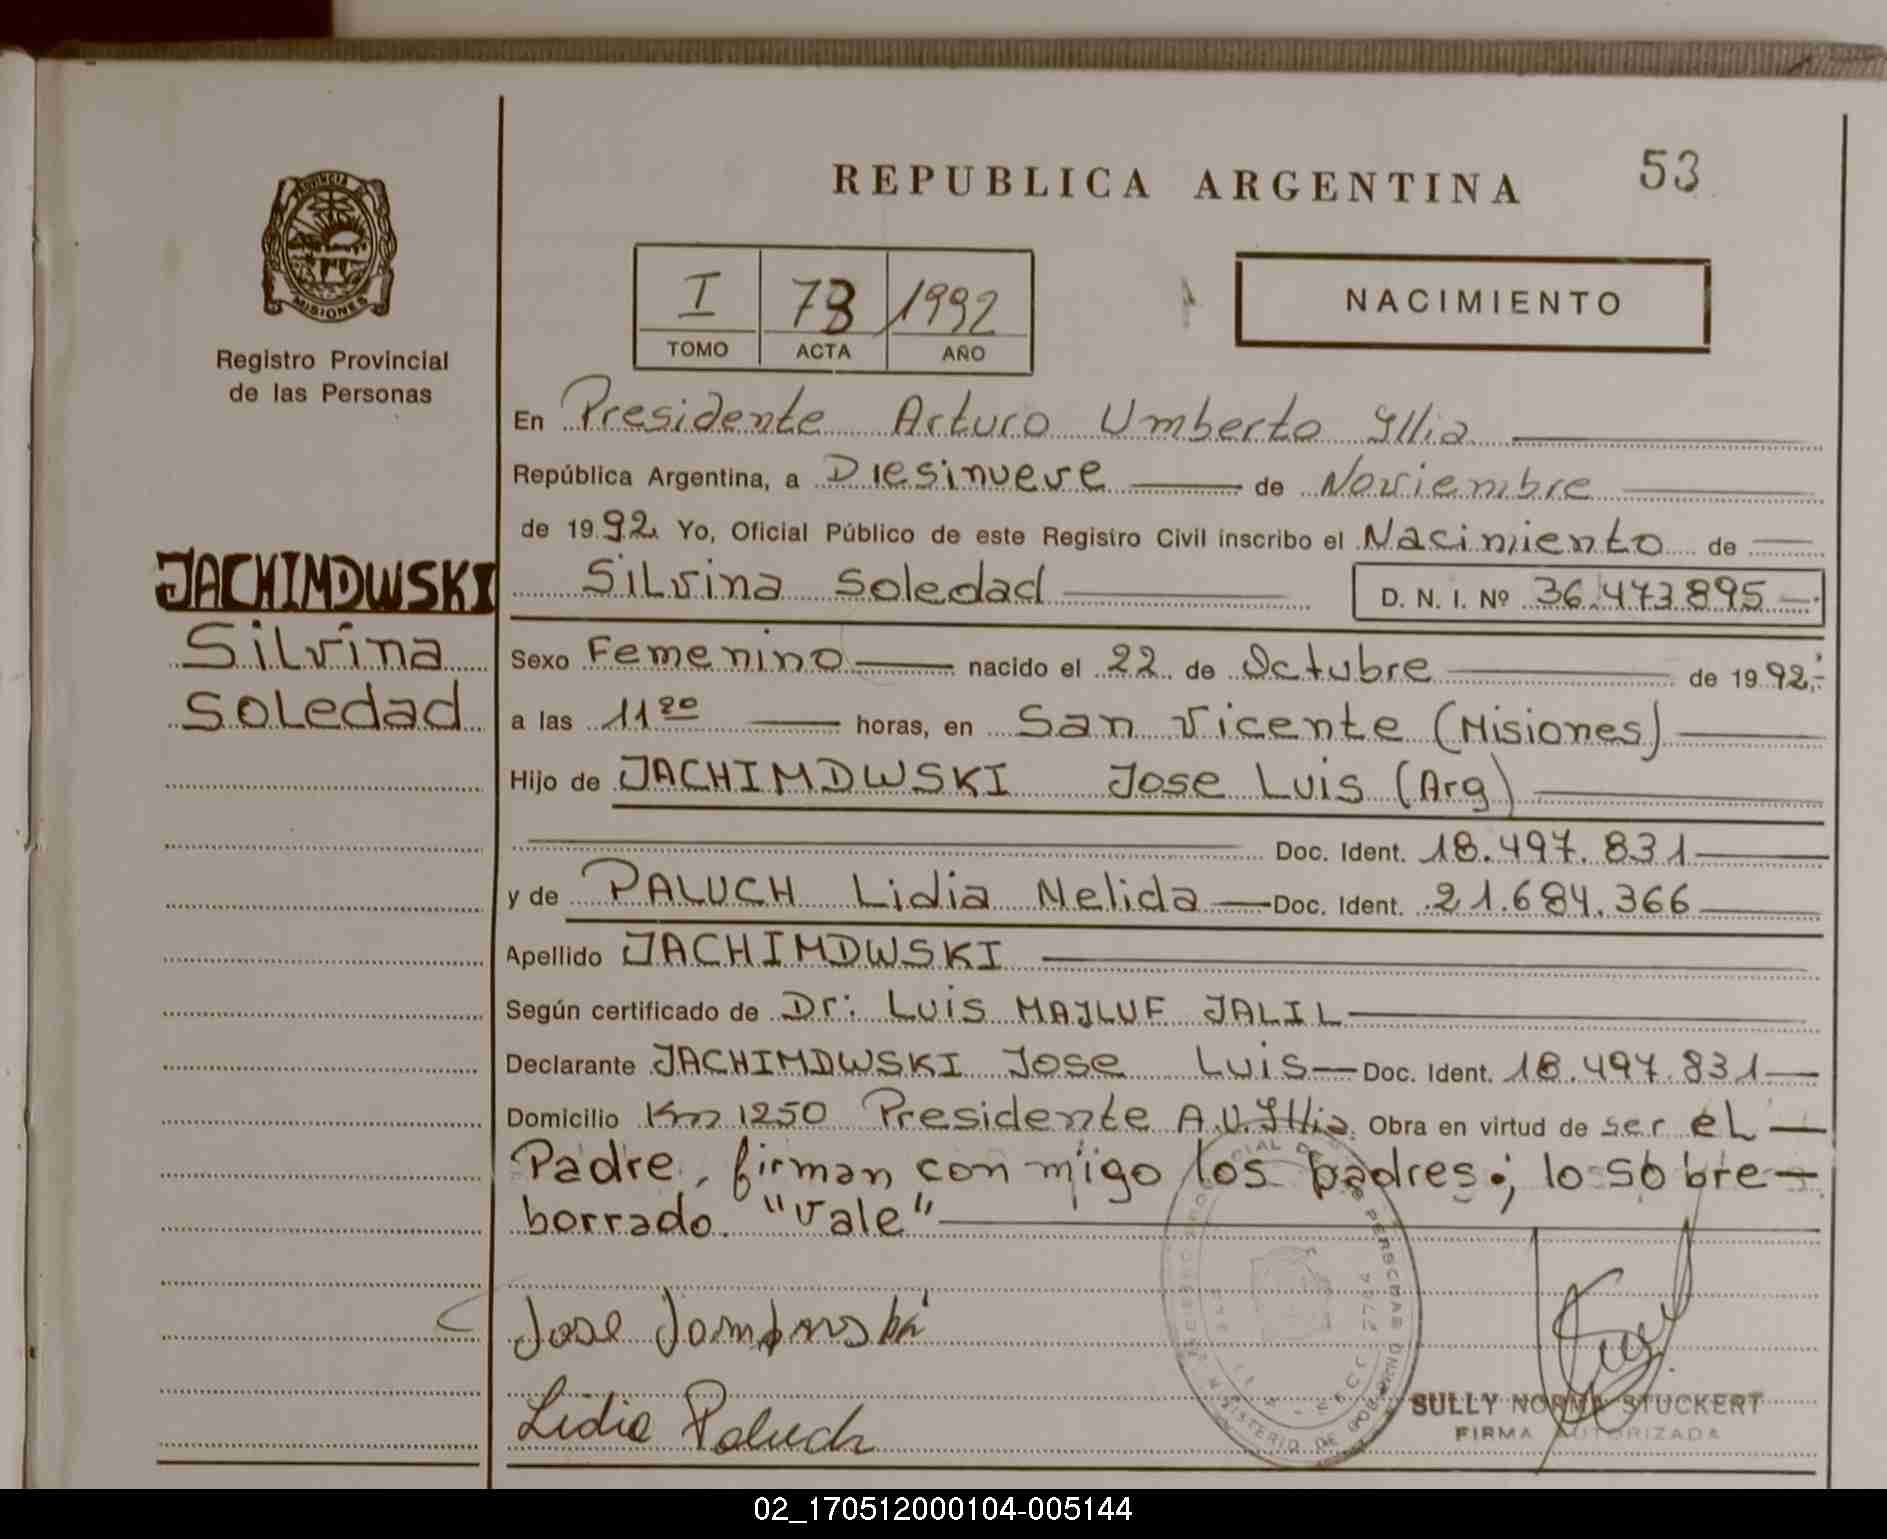 REPUBLICA ARGENTINA
53
PROVINCIA DE
MISIONES
Registro Provincial
de las Personas
I 78 1992
TOMO ACTA AÑO
NACIMIENTO
En Presidente Arturo Umberto Illia
República Argentina, a Diesinueve de Noviembre
de 1992. Yo, Oficial Público de este Registro Civil inscribo el Nacimiento de
JACHIMDWSKI
Silvina
Soledad
Silvina Soledad D. N. I. Nº 36.473895
Sexo Femenino nacido el 22 de Octubre de 1992.
a las 11 20 horas, en San Vicente (Misiones)
Hijo de JACHIMDWSKI Jose Luis (Arg)
Doc. Ident. 18.497.831
y de PALUCH Lidia Nelida Doc. Ident. 21.684.366
Apellido JACHIMDWSKI
Según certificado de Dr: Luis MAJLUF JALIL
Declarante JACHIMDWSKI Jose Luis Doc. Ident. 18.497.831
Domicilio Km 1250 Presidente A.U.Illia. Obra en virtud de ser el
Padre, firman con migo los padres; lo sobre
borrado. "Vale"
Jose
Lidia Paluch
SULLY NORMA STUCKERT
FIRMA AUTORIZADA
02_170512000104-005144